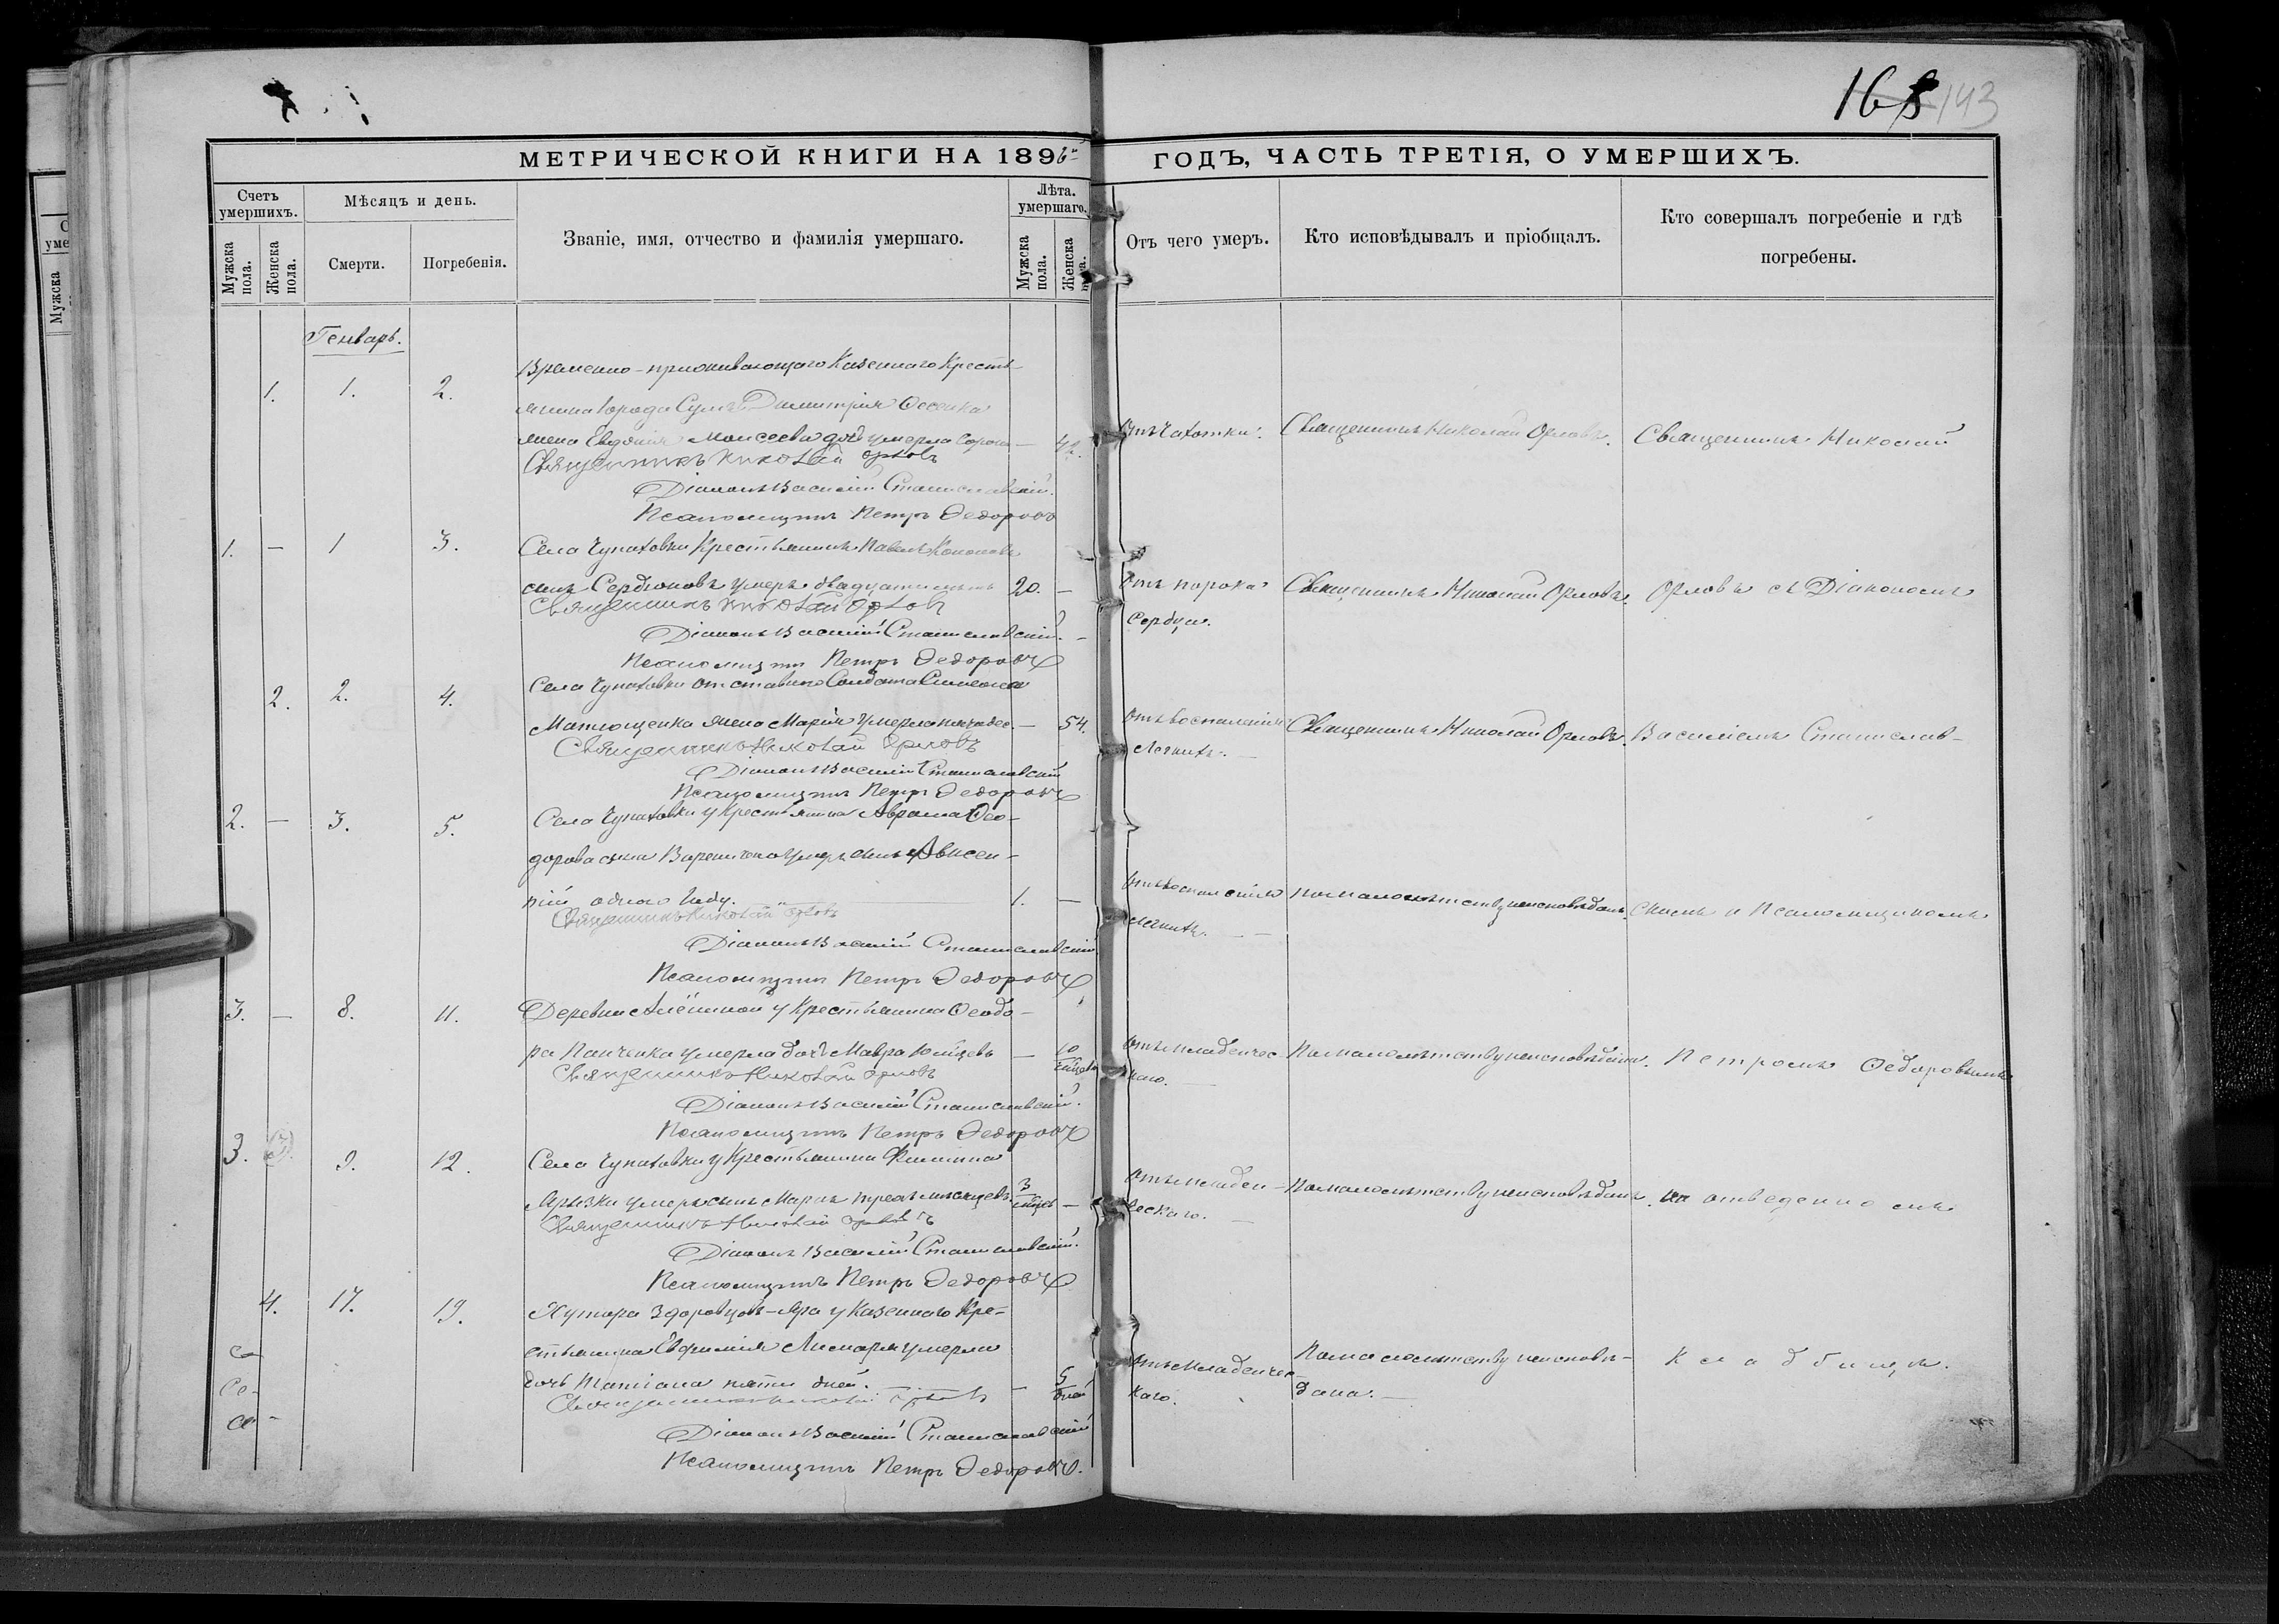 168 143
МЕТРИЧЕСКОЙ КНИГИ НА 1896 ГОДЪ, ЧАСТЬ ТРЕТІЯ, О УМЕРШИХЪ.
Счетъ умершихъ.
Мѣсяцъ и день.
Званіе, имя, отчество и фамилія умершаго.
Лѣта. умершаго.
Отъ чего умеръ.
Кто исповѣдывалъ и пріобщалъ.
Кто совершалъ погребеніе и гдѣ погребены.
Мужска пола.
Женска пола.
Смерти.
Погребенія.
Мужска пола.
Женска пола.
Генварь.
Временно-проживающаго Казеннаго Кресть-
1. 1. 2.
янина города Сумъ Димитрія
жена Евдокія Моисеева дочь умерла сорока — 42. Отъ чахотки. Священникъ Николай Орловъ. Священникъ Николай
Священникъ Николай Орловъ
Діаконъ Василій Станиславскій.
Псаломщикъ Петръ Федоровъ
1. — 1 3. Села Чупаховки Крестьянинъ Павелъ Кононовъ
сынъ Сердюковъ умеръ двадцати лѣтъ 20. — Отъ порока Священникъ Николай Орловъ. Орловъ съ Діакономъ
Священникъ Николай Орловъ
сердца.
Діаконъ Василій Станиславскій. —
Псаломщикъ Петръ Федоровъ
2. 2. 4. Села Чупаховки отставного Солдата Симеона
Матющенка жена Марія умерла пятьдес. — 54. Отъ воспаленія Священникъ Николай Орловъ. Василіемъ Станислав-
Священникъ Николай Орловъ
легкихъ. —
Діаконъ Василій Станиславскій
Псаломщикъ Петръ Федоровъ
2. — 3. 5. Села Чупаховки у Крестьянина Аврама Ѳео-
дорова сына умеръ сынъ Авксен-
тій одного году. 1. — Отъ воспаленія По малолѣтству неисповѣданъ. скимъ и Псаломщикомъ
Священникъ Николай Орловъ
легкихъ. — —
Діаконъ Василій Станиславскій
Псаломщикъ Петръ Федоровъ
3. — 8. 11. Деревни Алёшиной у Крестьянина Ѳеодо-
ра Панченка умерла дочь Мавра 10 мѣсцевъ — 10 мѣсцевъ Отъ младенчес- По малолѣтству неисповѣдана. Петромъ Ѳедоровымъ
Священникъ Николай Орловъ
каго. —
Діаконъ Василій Станиславскій.
Псаломщикъ Петръ Федоровъ
3. 3. 9. 12. Села Чупаховки у Крестьянина Филиппа
умеръ сынъ Маркъ трехъ мѣсяцевъ. 3 мѣсцевъ — Отъ младен- По малолѣтству неисповѣданъ. на отведенномъ
Священникъ Николай Орловъ
ческаго. —
Діаконъ Василій Станиславскій.
Псаломщикъ Петръ Федоровъ
4. 17. 19. Хутора Здоровцовъ-Яра у Казеннаго Кре-
стьянина Евфимія умерла
дочь Татіана пяти дней. — — 5 дней Отъ младенчес- По малолѣтству неисповѣ- Кладбищѣ.
Священникъ Николай Орловъ
каго. дана. —
Діаконъ Василій Станиславскій
Псаломщикъ Петръ Федоровъ.